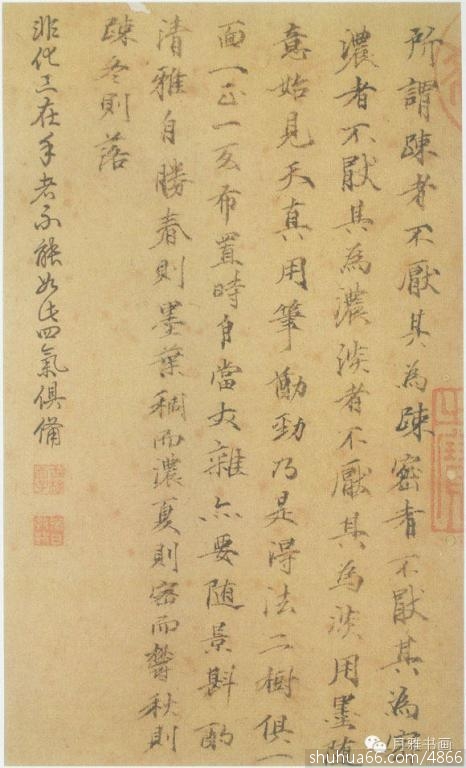 所謂踈者不厭其為踈密者不厭其為密
濃者不厭其為濃淡者不厭其為淡用墨
意始見天真用筆勁乃是得法二樹俱一
面一正一布置時自當雜亦要随景斟酌
清雅自勝春則墨葉稠而濃夏則密而鬱秋則
踈冬則落
非化工在手者不能如此四氣俱備
月雅书画
shuhua66.com/4866